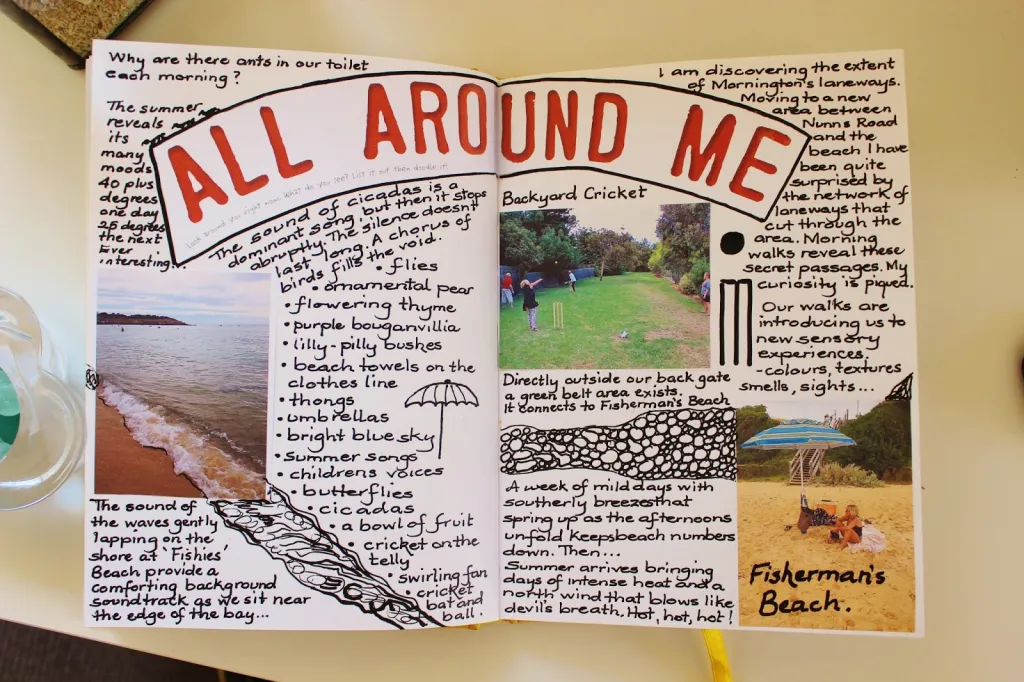 Why are there ants in our toilet
each morning?
ALL AROUND ME
Look around you right now. What do you see? List it out then doodle it!
The summer
reveals
its
many
moods
40 plus
degrees
one day
25 degrees
the next
Ever
interesting...
The sound of cicadas is a
dominant song, but then it stops
abruptly. The silence doesnt
last long. A chorus of
birds fills the void.
• flies
• ornamental pear
• flowering thyme
• purple bouganvillia
• lilly-pilly bushes
• beach towels on the
clothes line
• thongs
• umbrellas
• bright blue sky
• summer songs
• childrens voices
• butterflies
• cicadas
• a bowl of fruit
• cricket on the
telly
• swirling fan
• cricket
bat and
ball.
The sound of
the waves gently
lapping on the
shore at 'Fishies'
Beach provide a
comforting background
soundtrack as we sit near
the edge of the bay...
Backyard Cricket
Directly outside our back gate
a green belt area exists.
It connects to Fisherman's Beach
A week of mild days with
southerly breezes that
spring up as the afternoons
unfold keeps beach numbers
down. Then...
Summer arrives bringing
days of intense heat and a
north wind that blows like
devil's breath. Hot, hot, hot!
I am discovering the extent
of Mornington's laneways.
Moving to a new
area between
Nunns Road
and the
beach I have
been quite
surprised by
the network of
laneways that
cut through the
area. Morning
walks reveal these
secret passages. My
curiosity is piqued.
Our walks are
introducing us to
new sensory
experiences.
- colours, textures
smells, sights...
Fisherman's
Beach.